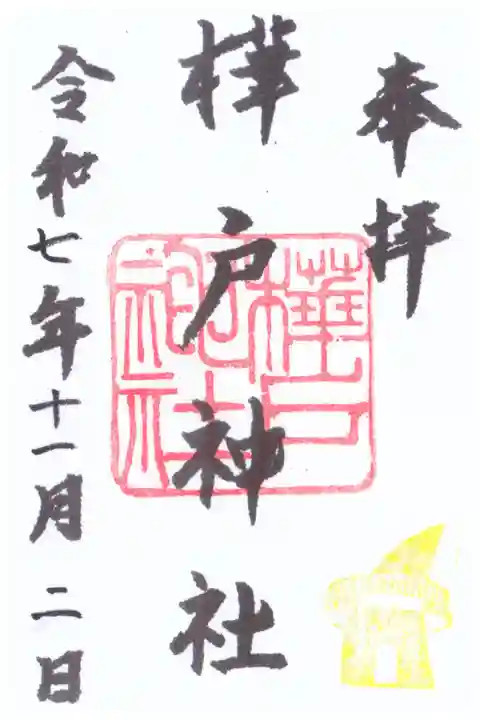 奉拝
樺戸神社
樺戸神社
令和七年十一月二日